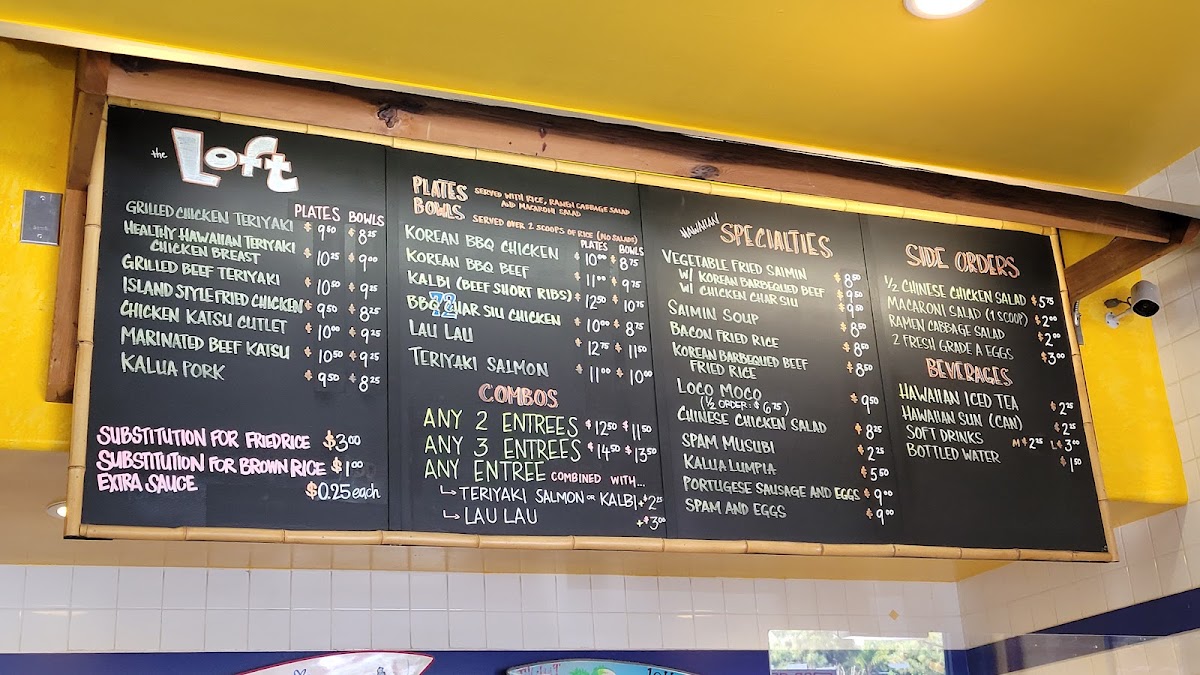 the Loft
PLATES BOWLS
GRILLED CHICKEN TERIYAKI $9.50 $8.25
HEALTHY HAWAIIAN TERIYAKI
CHICKEN BREAST $10.25 $9.00
GRILLED BEEF TERIYAKI $10.50 $9.25
ISLAND STYLE FRIED CHICKEN $9.50 $8.25
CHICKEN KATSU CUTLET $10.00 $9.25
MARINATED BEEF KATSU $10.50 $9.25
KALUA PORK $9.50 $8.25
SUBSTITUTION FOR FRIED RICE $3.00
SUBSTITUTION FOR BROWN RICE $1.00
EXTRA SAUCE $0.25 each
PLATES SERVED WITH RICE, RAMEN CABBAGE SALAD
AND MACARONI SALAD
BOWLS SERVED OVER 2 SCOOPS OF RICE (NO SALADS)
PLATES BOWLS
KOREAN BBQ CHICKEN $10.00 $8.75
KOREAN BBQ BEEF $11.00 $9.75
KALBI (BEEF SHORT RIBS) $12.50 $10.75
BBQ CHAR SIU CHICKEN $10.00 $8.75
LAU LAU $12.75 $11.50
TERIYAKI SALMON $11.00 $10.00
COMBOS
ANY 2 ENTREES $12.50 $11.50
ANY 3 ENTREES $14.50 $13.50
ANY ENTREE COMBINED WITH...
TERIYAKI SALMON OR KALBI +$2.25
LAU LAU +$3.00
HAWAIIAN SPECIALTIES
VEGETABLE FRIED SAIMIN $8.50
W/ KOREAN BARBEQUED BEEF $9.50
W/ CHICKEN CHAR SIU $9.50
SAIMIN SOUP $8.50
BACON FRIED RICE $8.50
KOREAN BARBEQUED BEEF
FRIED RICE $8.50
LOCO MOCO $9.50
(1/2 ORDER: $6.75)
CHINESE CHICKEN SALAD $8.25
SPAM MUSUBI $2.25
KALUA LUMPIA $5.50
PORTUGESE SAUSAGE AND EGGS $9.00
SPAM AND EGGS $9.00
SIDE ORDERS
1/2 CHINESE CHICKEN SALAD $5.75
MACARONI SALAD (1 SCOOP) $2.00
RAMEN CABBAGE SALAD $2.00
2 FRESH GRADE A EGGS $3.00
BEVERAGES
HAWAIIAN ICED TEA $2.25
HAWAIIAN SUN (CAN) $2.25
SOFT DRINKS M $2.25 L $3.00
BOTTLED WATER $1.50